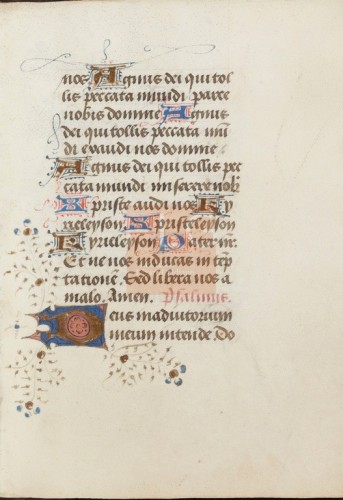 nos Agnus dei qui tol
lis peccata mundi parce
nobis domine Agnus
dei qui tollis peccata mū
di exaudi nos domine
Agnus dei qui tollis pec
cata mundi miserere nob
Xpriste audi nos Ky
rieleyson Xpristeleyson
Kyrieleyson Pater nr̄.
Et ne nos inducas in tēp
tationē. Sed libera nos a
malo. Amen. Psalmus.
Deus in adiutorium
meum intende Do